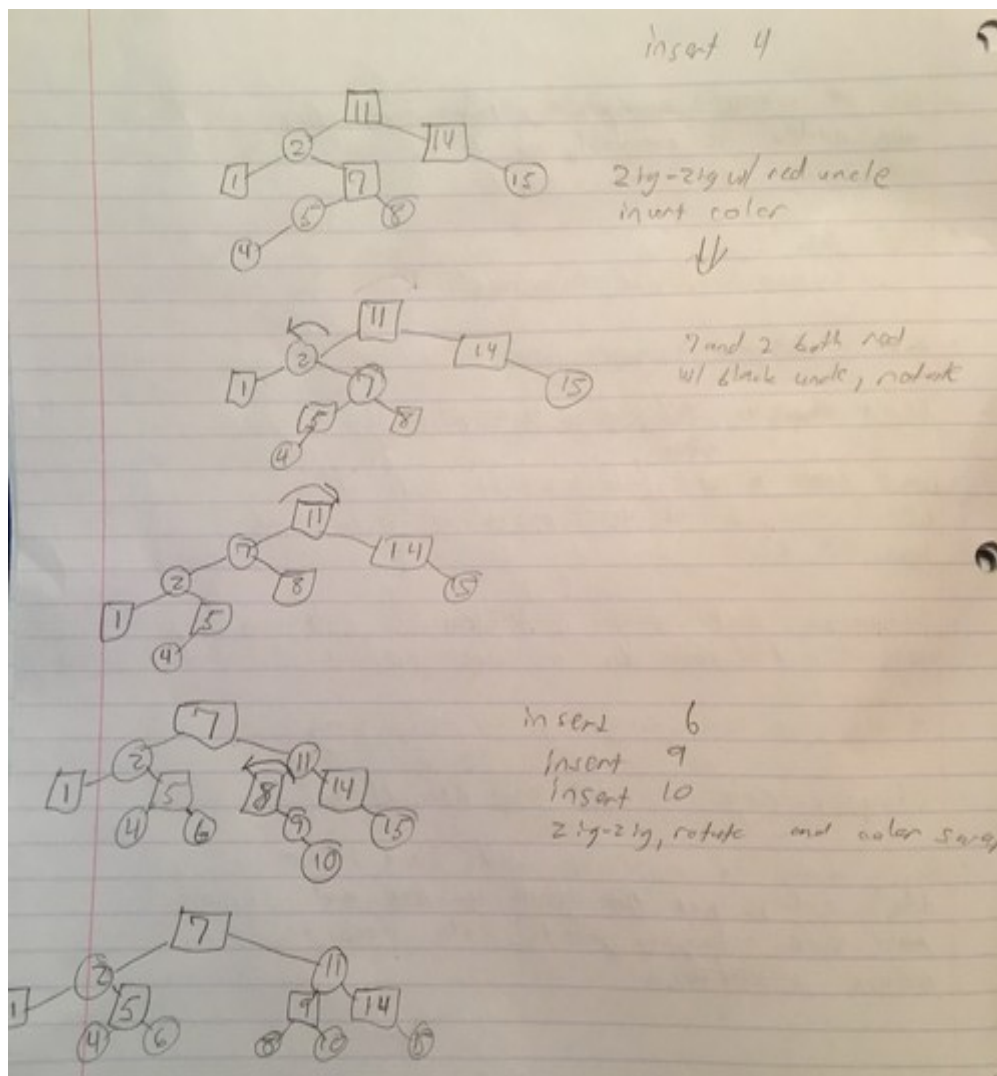 insert 4
11
2 14
1 7 15
5 8
4
zig-zig w/ red uncle
invert color
11
2 14
1 7 15
5 8
4
7 and 2 both red
w/ black uncle, rotate
11
7 14
2 8 15
1 5
4
7
2 11
1 5 8 14
4 6 9 15
10
insert 6
insert 9
insert 10
zig-zig, rotate and color swap
7
2 11
1 5 9 14
4 6 8 10 15